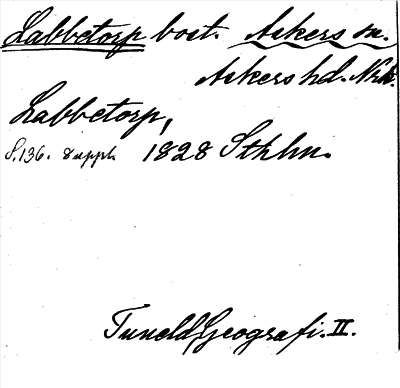 Labbetorp bost. Askers sn.
Askers hd. Nrk.
Labbetorp,
S. 136. suppl. 1828 Sthlm.
Tuneld, Geografi. II.